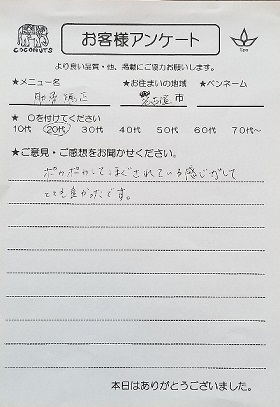 COCONUTS
お客様アンケート
Spa
より良い品質・他、掲載にご協力お願いします。
★メニュー名 ★お住まいの地域 ★ペンネーム
矯正 名古屋市
★ ○を付けてください
10代 20代 30代 40代 50代 60代 70代〜
★ご意見・ご感想をお聞かせください。
ポカポカしてほぐされている感じがして
とても良かったです。
本日はありがとうございました。